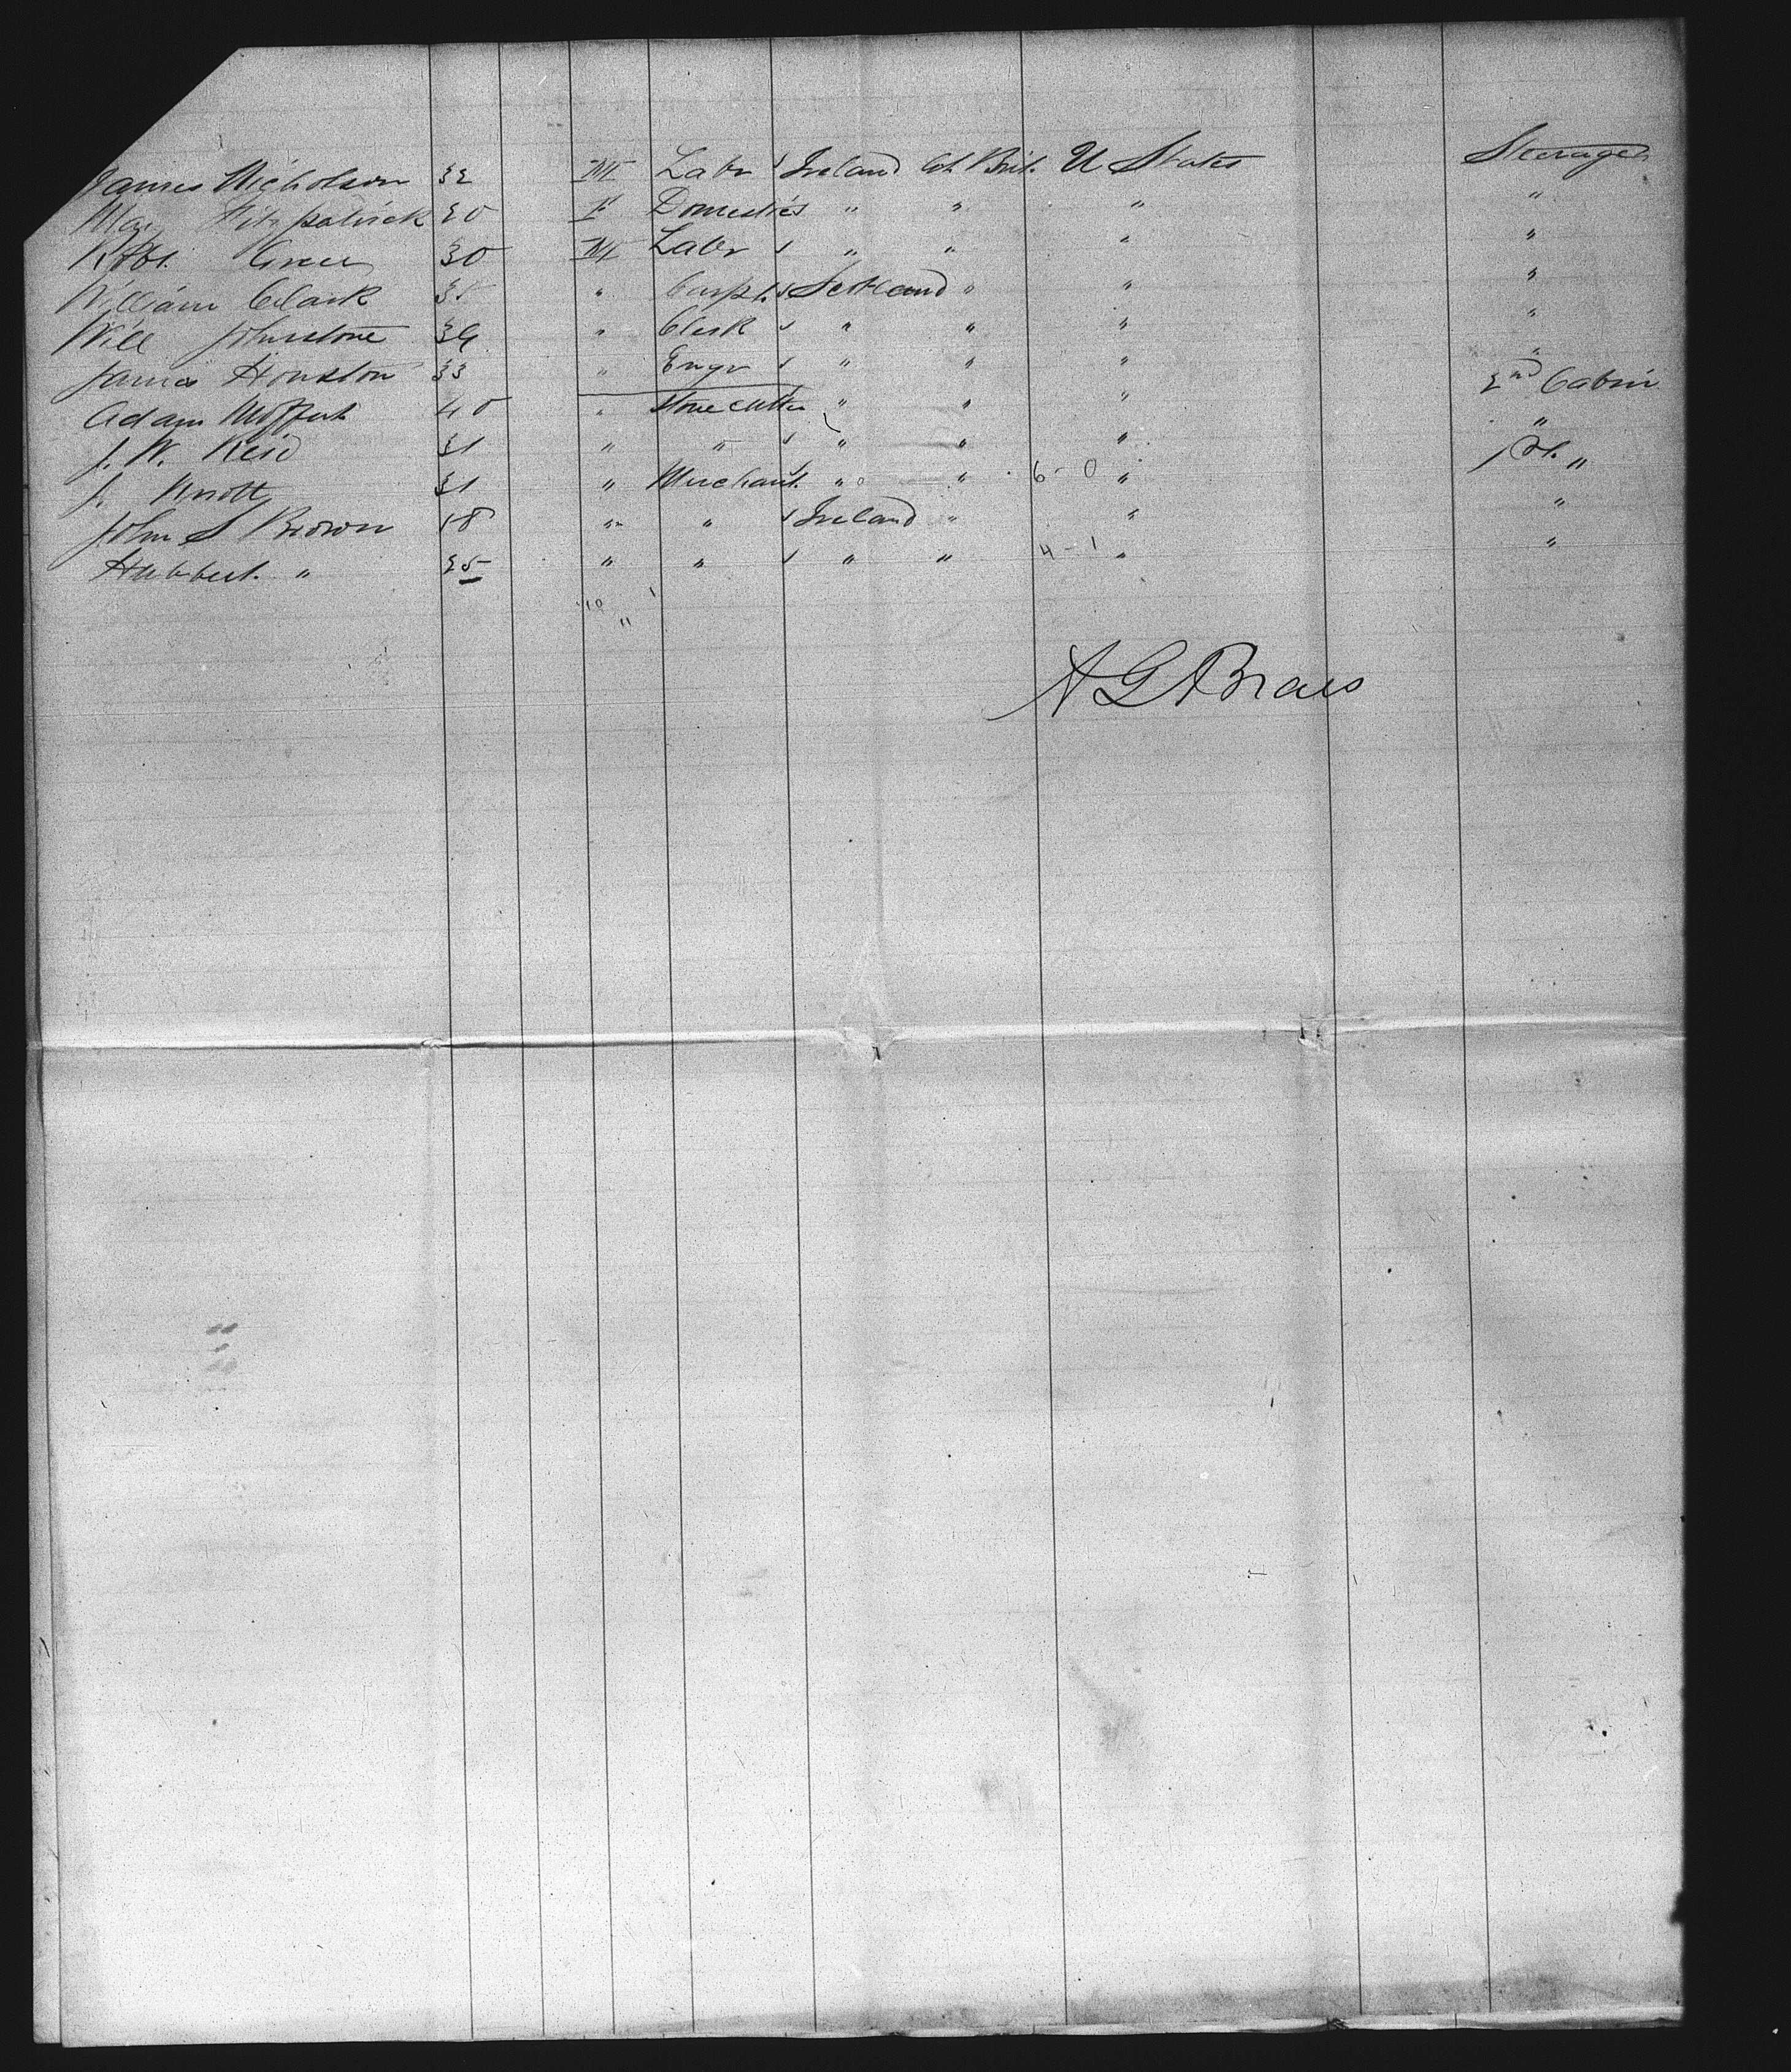 James Nicholson 32 M Labr Ireland Gt Brit. U States Steerage
May Fitzpatrick 20 F Domestic " " " "
Robt. Greer 30 M Labr " " " "
William Clark 35 " Carpt. Scotland " " "
Will Johnstone 34 " Clerk " " " "
James Houston 33 " Engr " " " "
Adam Moffat 40 " Stonecutter " " " 2nd Cabin
J. W. Reid 31 " " " " " "
J. Knott 31 " Merchant " " 6-0 " "
John S Brown 18 " " Ireland " " "
Hubbert " 25 " " " " 4-1 " "
10 1
11
A G Braes